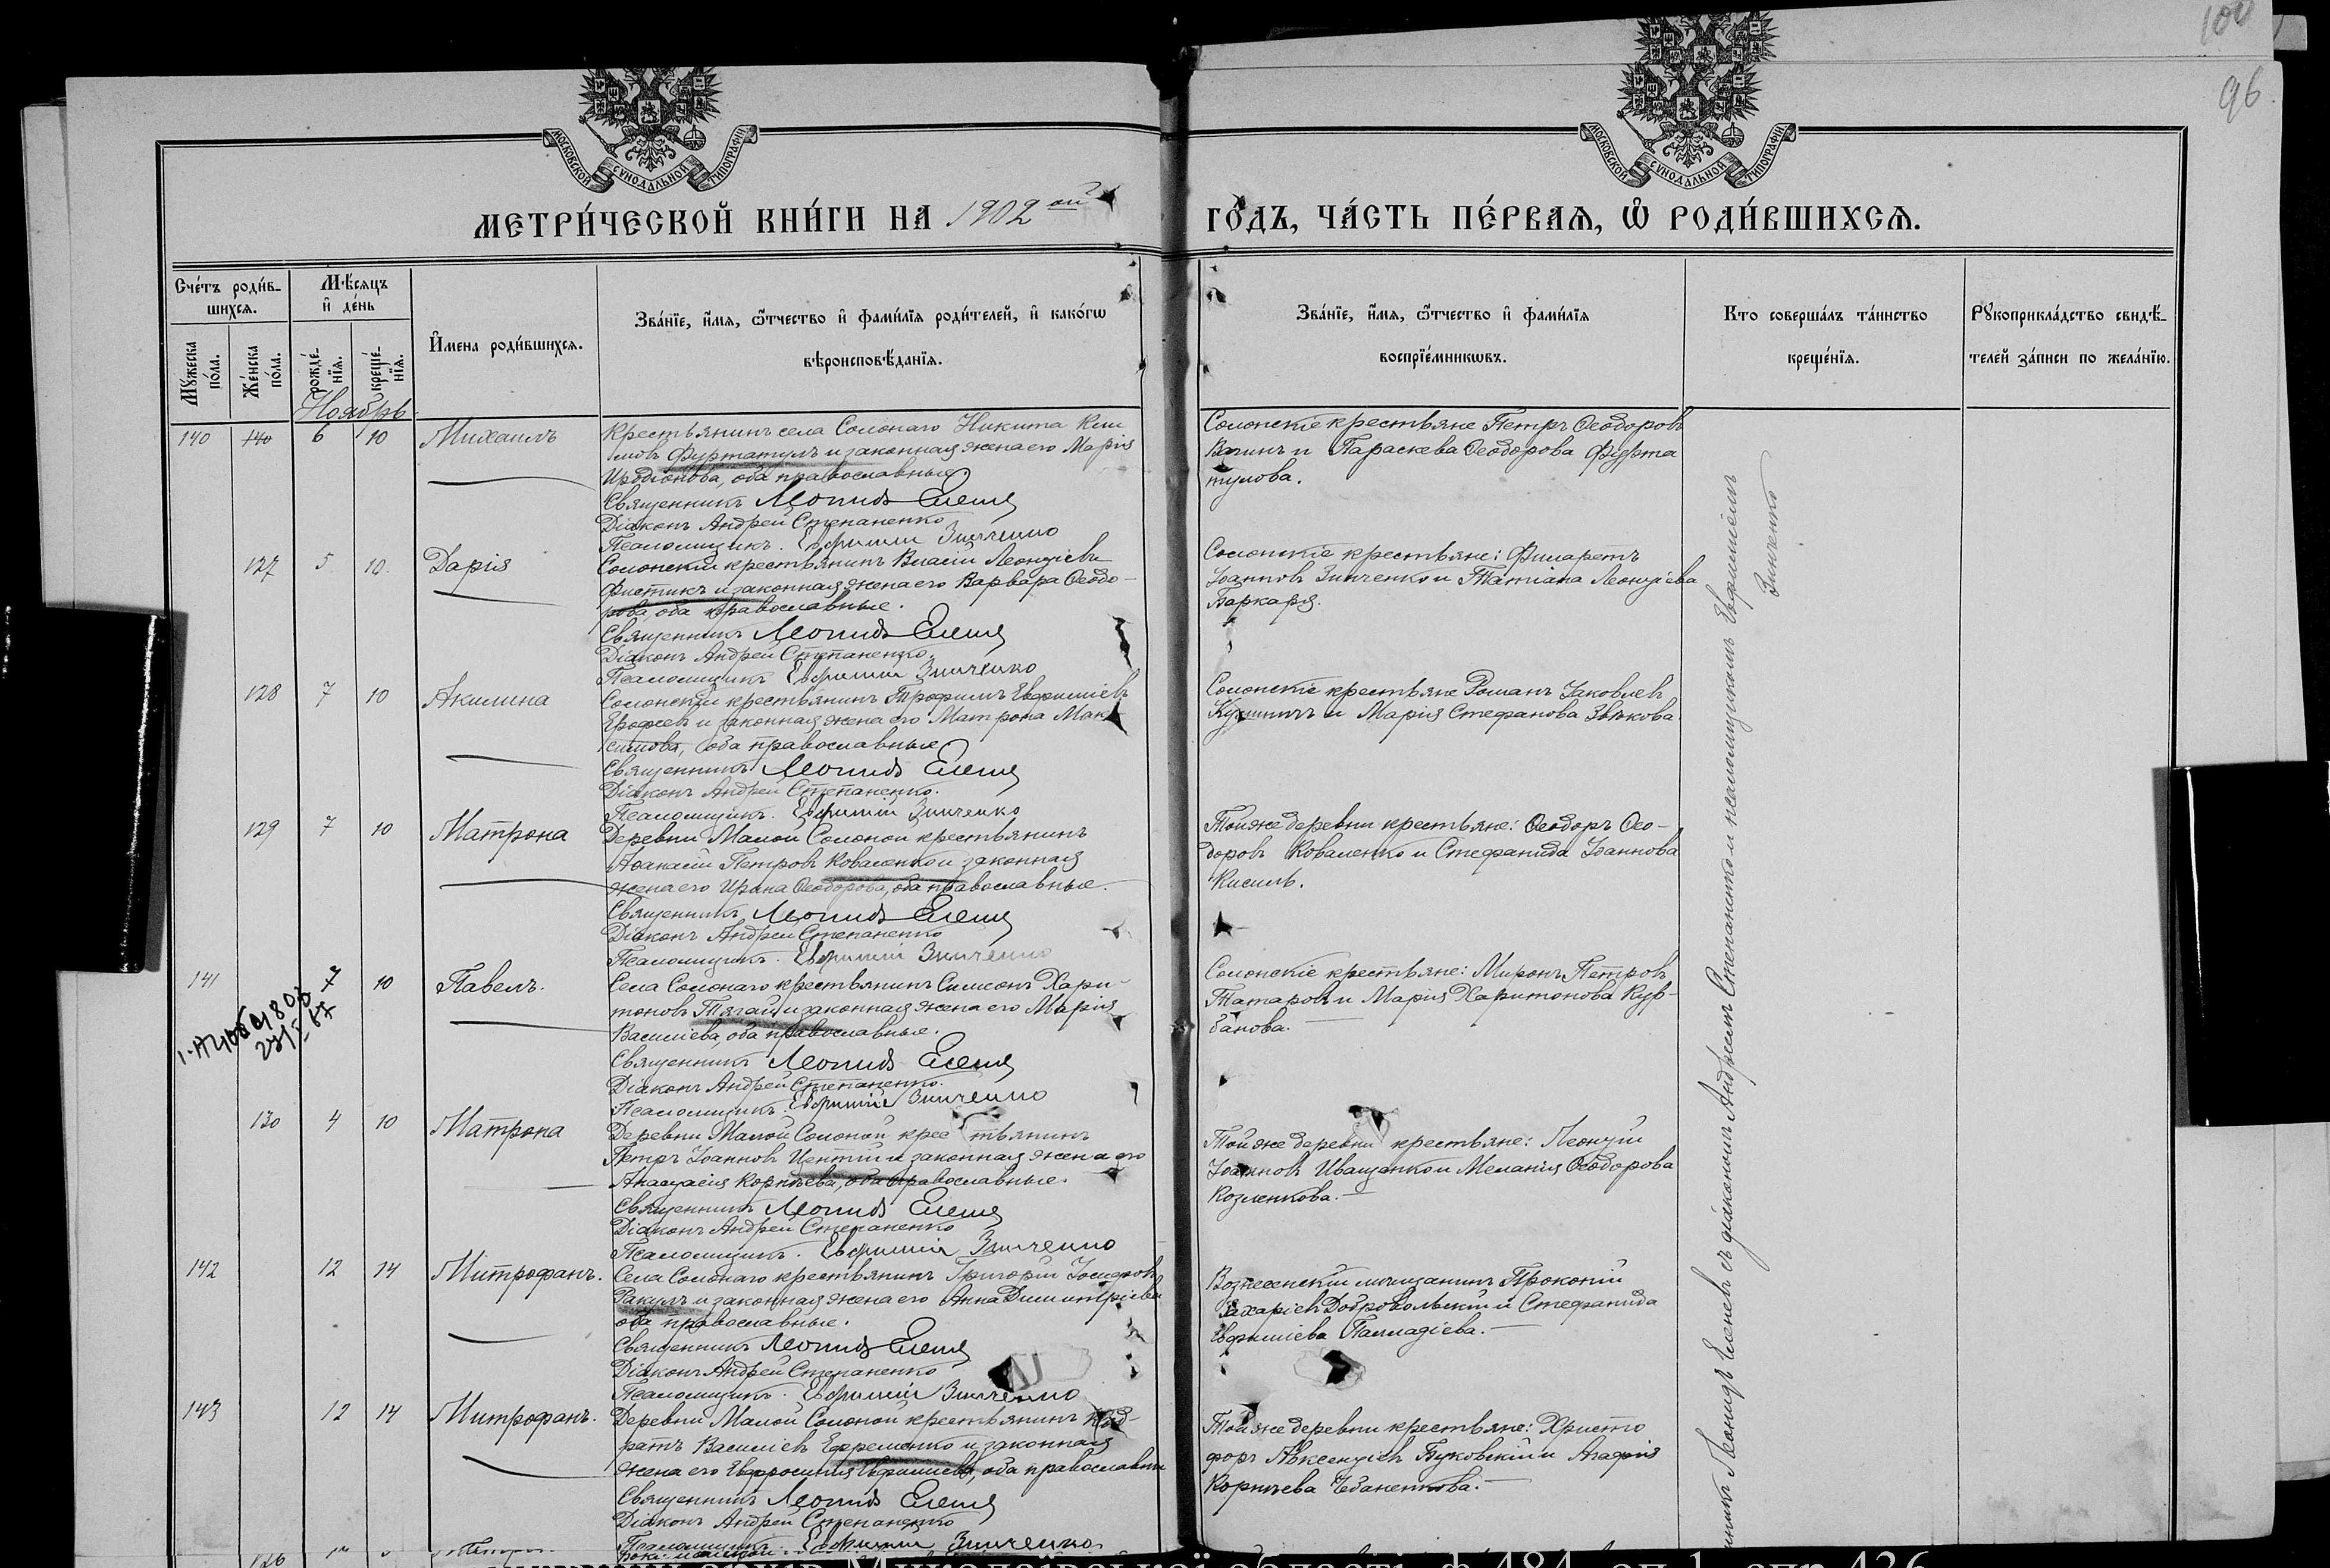 100
96
МОСКОВСКОЙ СУНОДАЛЬНОЙ ТИПОГРАФІИ
МОСКОВСКОЙ СУНОДАЛЬНОЙ ТИПОГРАФІИ
МЕТРИ́ЧЕСКОЙ КНИ́ГИ НА 1902 ой
ГО́ДЪ, ЧА́СТЬ ПЕ́РВАѦ, Ѡ҆ РОДИ́ВШИХСѦ.
Сче́тъ роди́в-
шихсѧ.
Мꙋ́жеска по́ла.
Же́нска по́ла.
Мѣ́сѧцъ и҆ де́нь
рожде́нїѧ.
креще́нїѧ.
И҆мена роди́вшихсѧ.
Зва́нїе, и҆́мѧ, ѻ҆́тчество и҆ фами́лїѧ роди́телей, и҆ како́гѡ
вѣроисповѣ́данїѧ.
Зва́нїе, и҆́мѧ, ѻ҆́тчество и҆ фами́лїѧ
воспрїе́мникѡвъ.
Кто соверша́лъ та́инство
креще́нїѧ.
Рꙋкоприкла́дство свидѣ́-
телей за́писи по жела́нїю.
Ноябрь
140 140 6 10 Михаилъ
Крестьянинъ села Солонаго Никита Кли
мовъ Фуртатулъ и законная жена его Марія
Иродіонова, оба православные
Священникъ Леонидъ Еленевъ
Діаконъ Андрей Степаненко
Псаломщикъ. Евфимій Зинченко
Солонскіе крестьяне Петръ Ѳеодоровъ
и Параскева Ѳеодорова Фурта
тулова.
127 5 10. Дарія
Солонскій крестьянинъ Власій Леонтіевъ
Фистикъ и законная жена его Варвара Ѳеодо-
рова, оба православные.
Священникъ Леонидъ Еленевъ
Діаконъ Андрей Степаненко.
Псаломщикъ Евфимій Зинченко
Солонскіе крестьяне: Филаретъ
Іоанновъ Зинченко и Татіана Леонтіева
Баркаря.
128 7 10 Акилина
Солонскій крестьянинъ Трофимъ Евфиміевъ
Ерофеевъ и законная жена его Матрона Мак-
симова, оба православные
Священникъ Леонидъ Еленевъ
Діаконъ Андрей Степаненко.
Псаломщикъ. Евфимій Зинченко
Солонскіе крестьяне Романъ Іаковлевъ
и Марія Стефанова Звѣкова
129 7 10 Матрона
Деревни Малой Солоной крестьянинъ
Аѳанасій Петровъ Коваленко и законная
жена его Ирина Ѳеодорова, оба православные.
Священникъ Леонидъ Еленевъ
Діаконъ Андрей Степаненко
Псаломщикъ. Евфимій Зинченко
Той же деревни крестьяне: Ѳеодоръ Ѳео-
доровъ Коваленко и Стефанида Іоаннова
Кисиль.
141 7 10 Павелъ.
Села Солонаго крестьянинъ Симеонъ Хари-
тоновъ Тягай и законная жена его Марія
Васильева, оба православные.
Священникъ Леонидъ Еленевъ
Діаконъ Андрей Степаненко.
Псаломщикъ. Евфимій Зинченко
Солонскіе крестьяне: Миронъ Петровъ
Татаровъ и Марія Харитонова Кур-
банова.
130 4 10 Матрона
Деревни Малой Солоной крестьянинъ
Петръ Іоанновъ и законная жена его
Анастасія Корнѣева, оба православные.
Священникъ Леонидъ Еленевъ
Діаконъ Андрей Степаненко
Псаломщикъ. Евфимій Зинченко
Той же деревни крестьяне: Леонтій
Іоанновъ Иващенко и Меланія Ѳеодорова
Козленкова.
142 12 14 Митрофанъ.
Села Солонаго крестьянинъ Григорій Іосифовъ
Ракулъ и законная жена его Анна Димитріева
оба православные.
Священникъ Леонидъ Еленевъ
Діаконъ Андрей Степаненко
Псаломщикъ. Евфимій Зинченко
Вознесенскій мѣщанинъ Прокопій
Захаріевъ Добровольскій и Стефанида
Евфиміева Палладіева.
143 12 14 Митрофанъ.
Деревни Малой Солоной крестьянинъ Код-
ратъ Василіевъ Ефременко и законная
жена его Евфросинія Евфиміева, оба православные
Священникъ Леонидъ Еленевъ
Діаконъ Андрей Степаненко
Псаломщикъ. Евфимій Зинченко.
Той же деревни крестьяне: Христо
форъ Авксентіевъ Буковскій и Агафія
Корнѣева Чебаненкова.
Леонидъ Еленевъ съ діакономъ Андреемъ Степаненко и псаломщикомъ Евфиміемъ
Зинченко